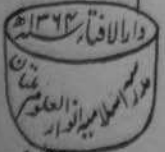 دارالافتاء ۱۳۶۴ھ
مدرسہ اسلامیہ انوار العلوم ملتان